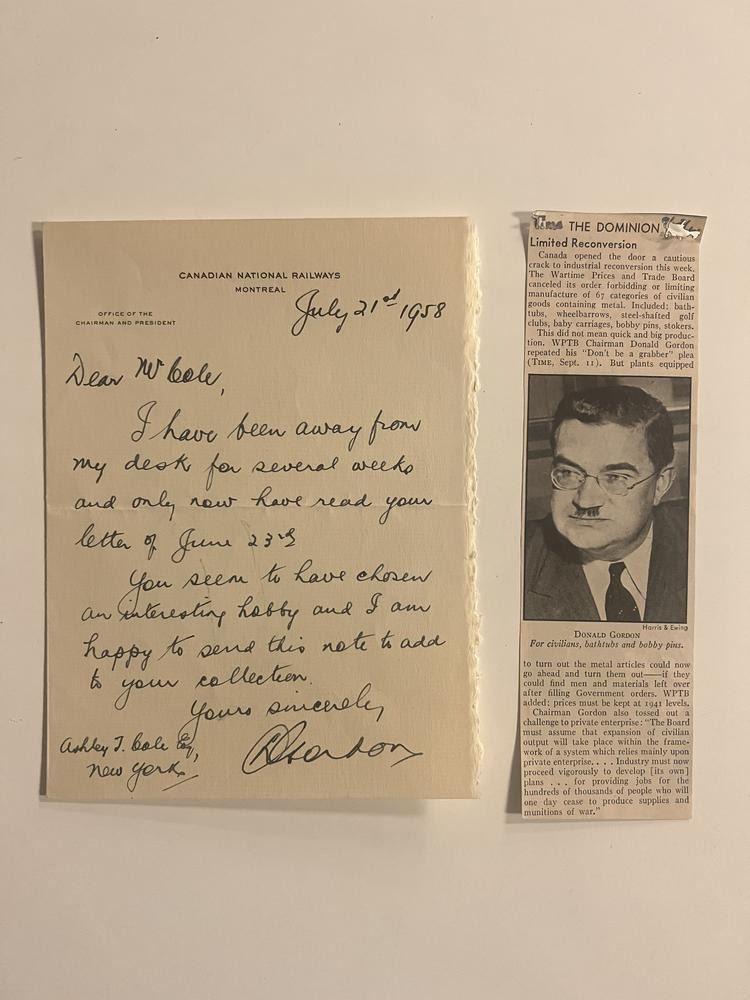 CANADIAN NATIONAL RAILWAYS
MONTREAL
OFFICE OF THE
CHAIRMAN AND PRESIDENT
July 21st 1958
Dear Mr Cole,
I have been away from
my desk for several weeks
and only now have read your
letter of June 23rd
You seem to have chosen
an interesting hobby and I am
happy to send this note to add
to your collection.
Yours sincerely
DGordon
Ashley T. Cole Esq,
New York
Time THE DOMINION
Limited Reconversion
Canada opened the door a cautious
crack to industrial reconversion this week.
The Wartime Prices and Trade Board
canceled its order forbidding or limiting
manufacture of 67 categories of civilian
goods containing metal. Included: bath-
tubs, wheelbarrows, steel-shafted golf
clubs, baby carriages, bobby pins, stokers.
This did not mean quick and big produc-
tion. WPTB Chairman Donald Gordon
repeated his "Don't be a grabber" plea
(TIME, Sept. 11). But plants equipped
Harris & Ewing
DONALD GORDON
For civilians, bathtubs and bobby pins.
to turn out the metal articles could now
go ahead and turn them out—if they
could find men and materials left over
after filling Government orders. WPTB
added: prices must be kept at 1941 levels.
Chairman Gordon also tossed out a
challenge to private enterprise: "The Board
must assume that expansion of civilian
output will take place within the frame-
work of a system which relies mainly upon
private enterprise. . . . Industry must now
proceed vigorously to develop [its own]
plans . . . for providing jobs for the
hundreds of thousands of people who will
one day cease to produce supplies and
munitions of war."